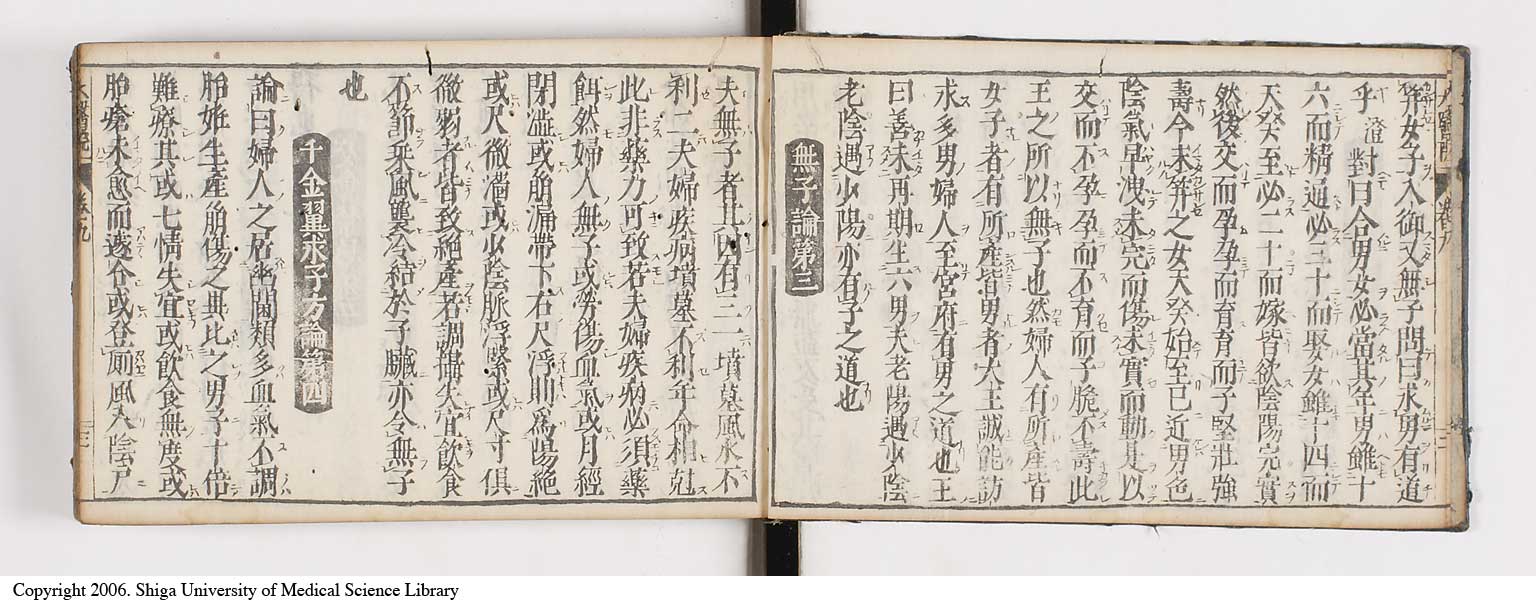 笄女子入御又無子問曰求男有道
乎澄對曰合男女必當其年男雖十
六而精通必三十而娶女雖十四而
天癸至必二十而嫁皆欲陰陽完實
然後交而孕孕而育育而子堅壯強
壽今未笄之女天癸始至已近男色
陰氣早洩未完而傷未實而動是以
交而不孕孕而不育而子脆不壽此
王之所以無子也然婦人有所產皆
女子者有所產皆男者大王誠能訪
求多男婦人至宮府有男之道也王
曰善未再期生六男夫老陽遇少陰
老陰遇少陽亦有子之道也
無子論第三
夫無子者其因有三一墳墓風水不
利二夫婦疾病墳墓不利年命相尅
此非藥力可致若夫婦疾病必須藥
餌然婦人無子或勞傷血氣或月經
閉澁或崩漏帶下右尺浮則爲陽絕
或尺微濇或少陰脈浮緊或尺寸俱
微弱者皆致絕產若調攝失宜飲食
不節乗風襲冷結於子臟亦令無子
也
千金翼求子方論第四
論曰婦人之居幽閫類多血氣不調
胎姙生產崩傷之與比之男子十倍
難療其或七情失宜或飲食無度或
胎瘡未愈而遂合或登厠風入陰戸
Copyright 2006. Shiga University of Medical Science Library